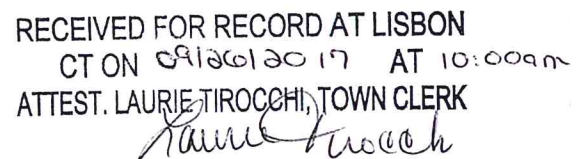 RECEIVED FOR RECORD AT LISBON
CT ON 09/26/2017 AT 10:00am
ATTEST. LAURIE TIROCCHI, TOWN CLERK
Laurie Tirocchi